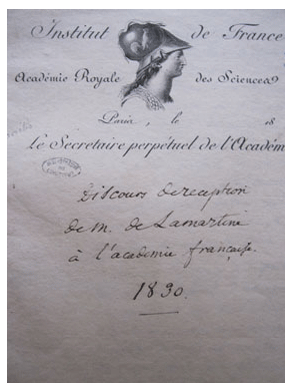 Institut de France
Académie Royale des Sciences
Paris, le 18
Le Secrétaire perpétuel de l'Académ
Discours de reception
de M. de Lamartine
à l'académie française.
1830.